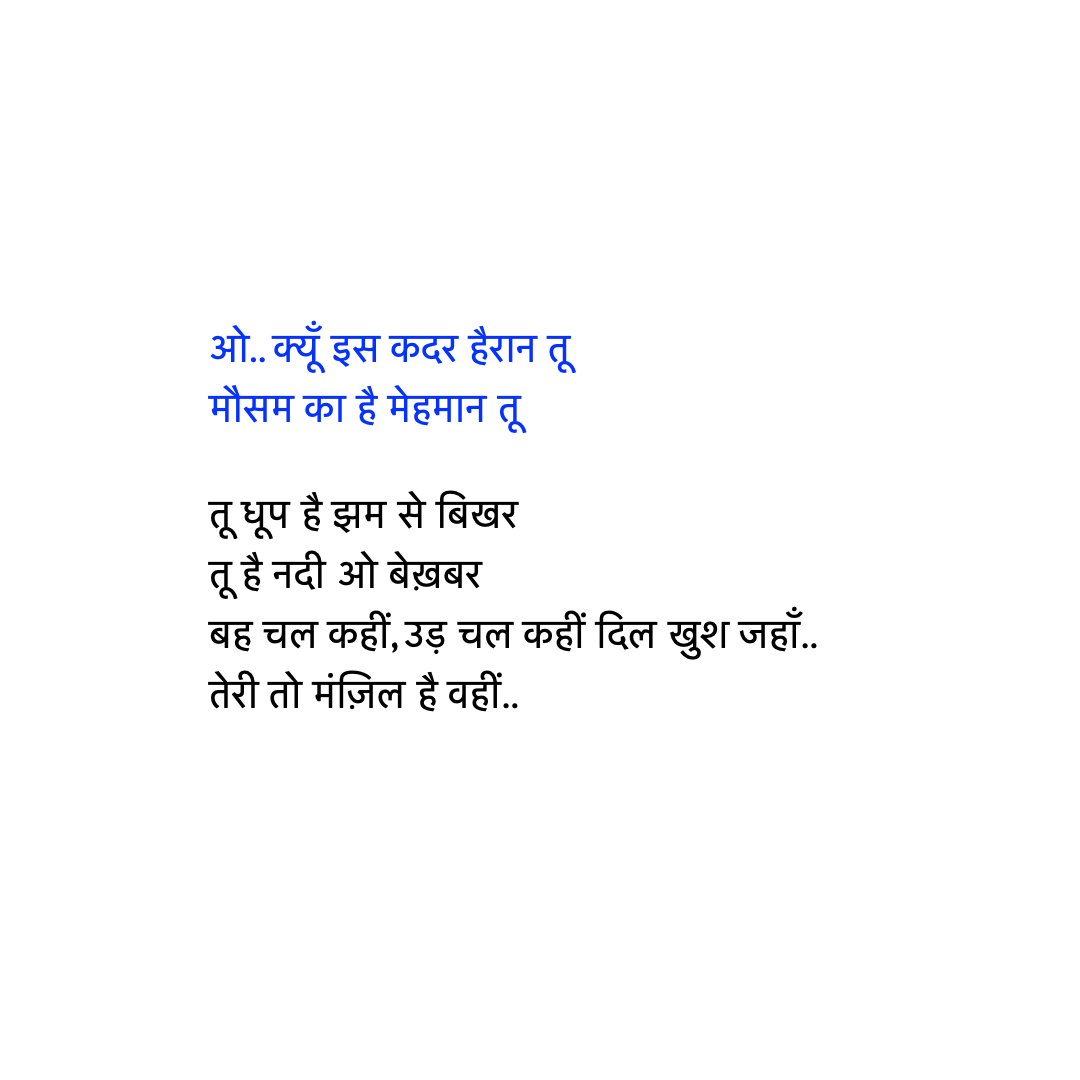 ओ.. क्यूँ इस कदर हैरान तू
मौसम का है मेहमान तू
तू धूप है झम से बिखर
तू है नदी ओ बेख़बर
बह चल कहीं, उड़ चल कहीं दिल खुश जहाँ..
तेरी तो मंज़िल है वहीं..